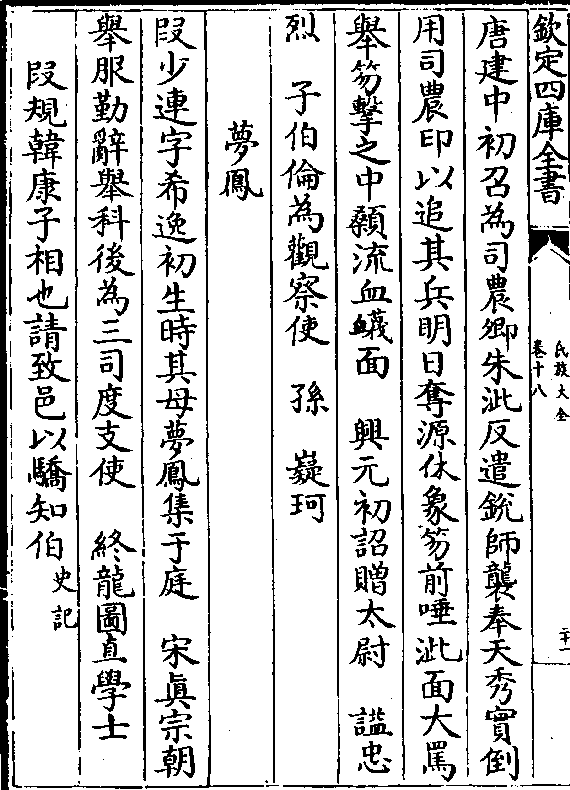 欽定四庫全書
氏族大全
卷十八
二十一
唐建中初召為司農卿朱泚反遣銳師襲奉天秀實倒
用司農印以追其兵明日奪源休象笏前唾泚面大罵
舉笏擊之中顙流血衊面　興元初詔贈太尉　諡忠
烈　子伯倫為觀察使　孫　嶷珂
夢鳳
段少連字希逸初生時其母夢鳳集于庭　宋眞宗朝
舉服勤辭舉科後為三司度支使　終龍圖直學士
段規韓康子相也請致邑以驕知伯史記